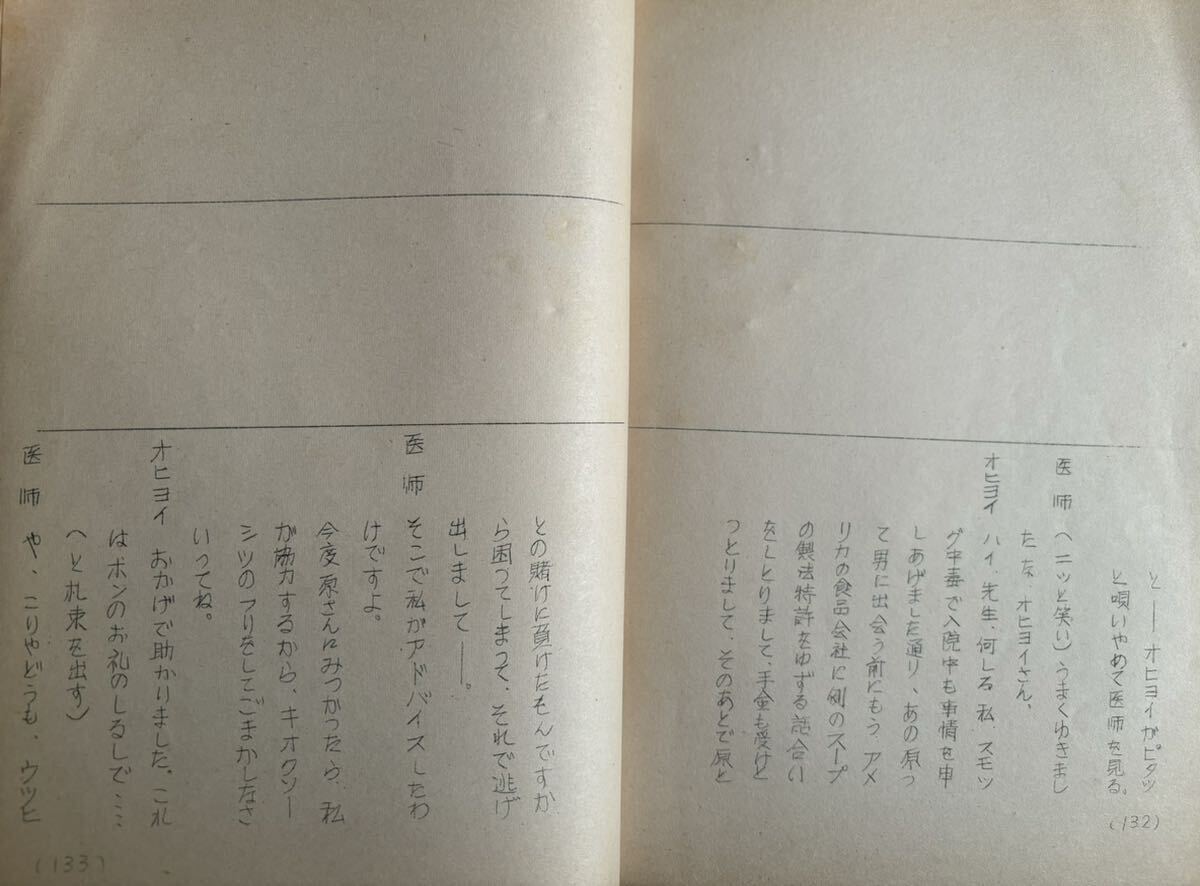 と――オヒヨイがピタッ
と唄いやめて医師を見る。
医師 (ニッと笑い)うまくゆきまし
たな、オヒヨイさん、
オヒヨイ ハイ、先生、何しろ私、スモッ
グ中毒で入院中も事情を申
しあげました通り、あの原っ
て男に出会う前にもう、アメ
リカの食品会社に例のスープ
の製法特許をゆずる話合い
をしとりまして、手金も受けと
っとりまして、そのあとで原と
(132)
との賭けに負けたもんですか
ら困ってしまって、それで逃げ
出しまして――。
医師 そこで私がアドバイスしたわ
けですよ。
今度原さんにみつかったら、私
が協力するから、キオクソー
シツのフリをしてごまかしなさ
いってね。
オヒヨイ おかげで助かりました。これ
はホンのお礼のしるしで、……
(と札束を出す)
医師 や、こりゃどうも、ウッヒ
(133)